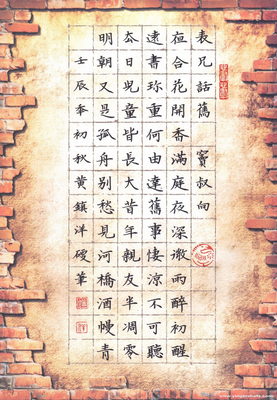 表兄話舊 竇叔向
夜合花開香滿庭夜深微雨醉初醒
遠書珎重何由達舊事悽涼不可聽
去日兒童皆長大昔年親友半凋零
明朝又是孤舟別愁見河橋酒幔青
壬辰秊初秋黃鎮洋硬筆